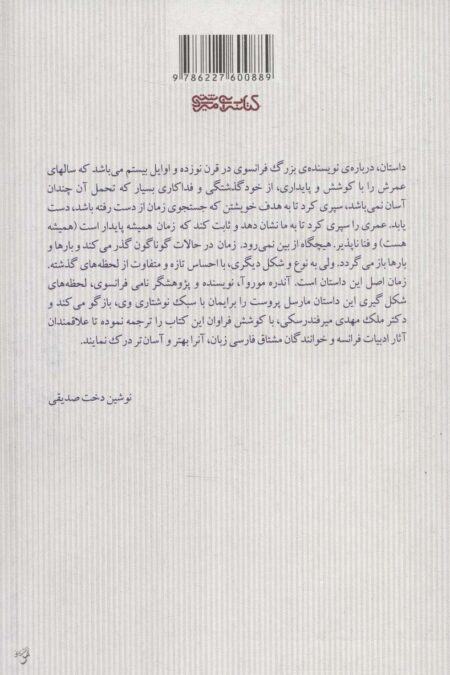 9 786227 600889
کتابسرای میردشتی
داستان، درباره‌ی نویسنده‌ی بزرگ فرانسوی در قرن نوزده و اوایل بیستم می‌باشد که سالهای
عمرش را با کوشش و پایداری، از خودگذشتگی و فداکاری بسیار که تحمل آن چندان
آسان نمی‌باشد، سپری کرد تا به هدف خویشتن که جستجوی زمان از دست رفته باشد، دست
یابد. عمری را سپری کرد تا به ما نشان دهد و ثابت کند که زمان همیشه پایدار است (همیشه
هست) و فنا ناپذیر. هیچگاه از بین نمی‌رود. زمان در حالات گوناگون گذر می‌کند و بارها و
بارها باز می گردد. ولی به نوع و شکل دیگری، با احساس تازه و متفاوت از لحظه‌های گذشته.
زمان اصل این داستان است. آندره موروآ، نویسنده و پژوهشگر نامی فرانسوی، لحظه‌های
شکل گیری این داستان مارسل پروست را برایمان با سبک نوشتاری وی، بازگو می‌کند و
دکتر ملک مهدی میرفندرسکی، با کوشش فراوان این کتاب را ترجمه نموده تا علاقمندان
آثار ادبیات فرانسه و خوانندگان مشتاق فارسی زبان، آنرا بهتر و آسان‌تر درک نمایند.
نوشین دخت صدیقی